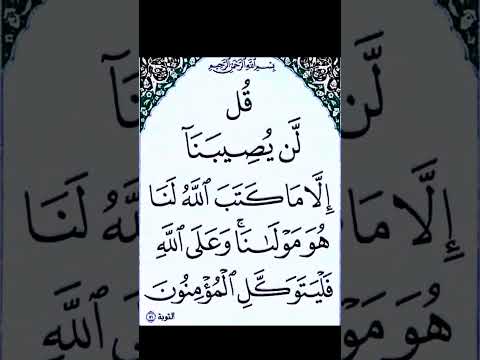 بِسْمِ اللَّهِ الرَّحْمَٰنِ الرَّحِيمِ
قُل
لَّن يُصِيبَنَآ
إِلَّا مَا كَتَبَ ٱللَّهُ لَنَا
هُوَ مَوْلَىٰنَا ۚ وَعَلَى ٱللَّهِ
فَلْيَتَوَكَّلِ ٱلْمُؤْمِنُونَ
التوبة ٥١